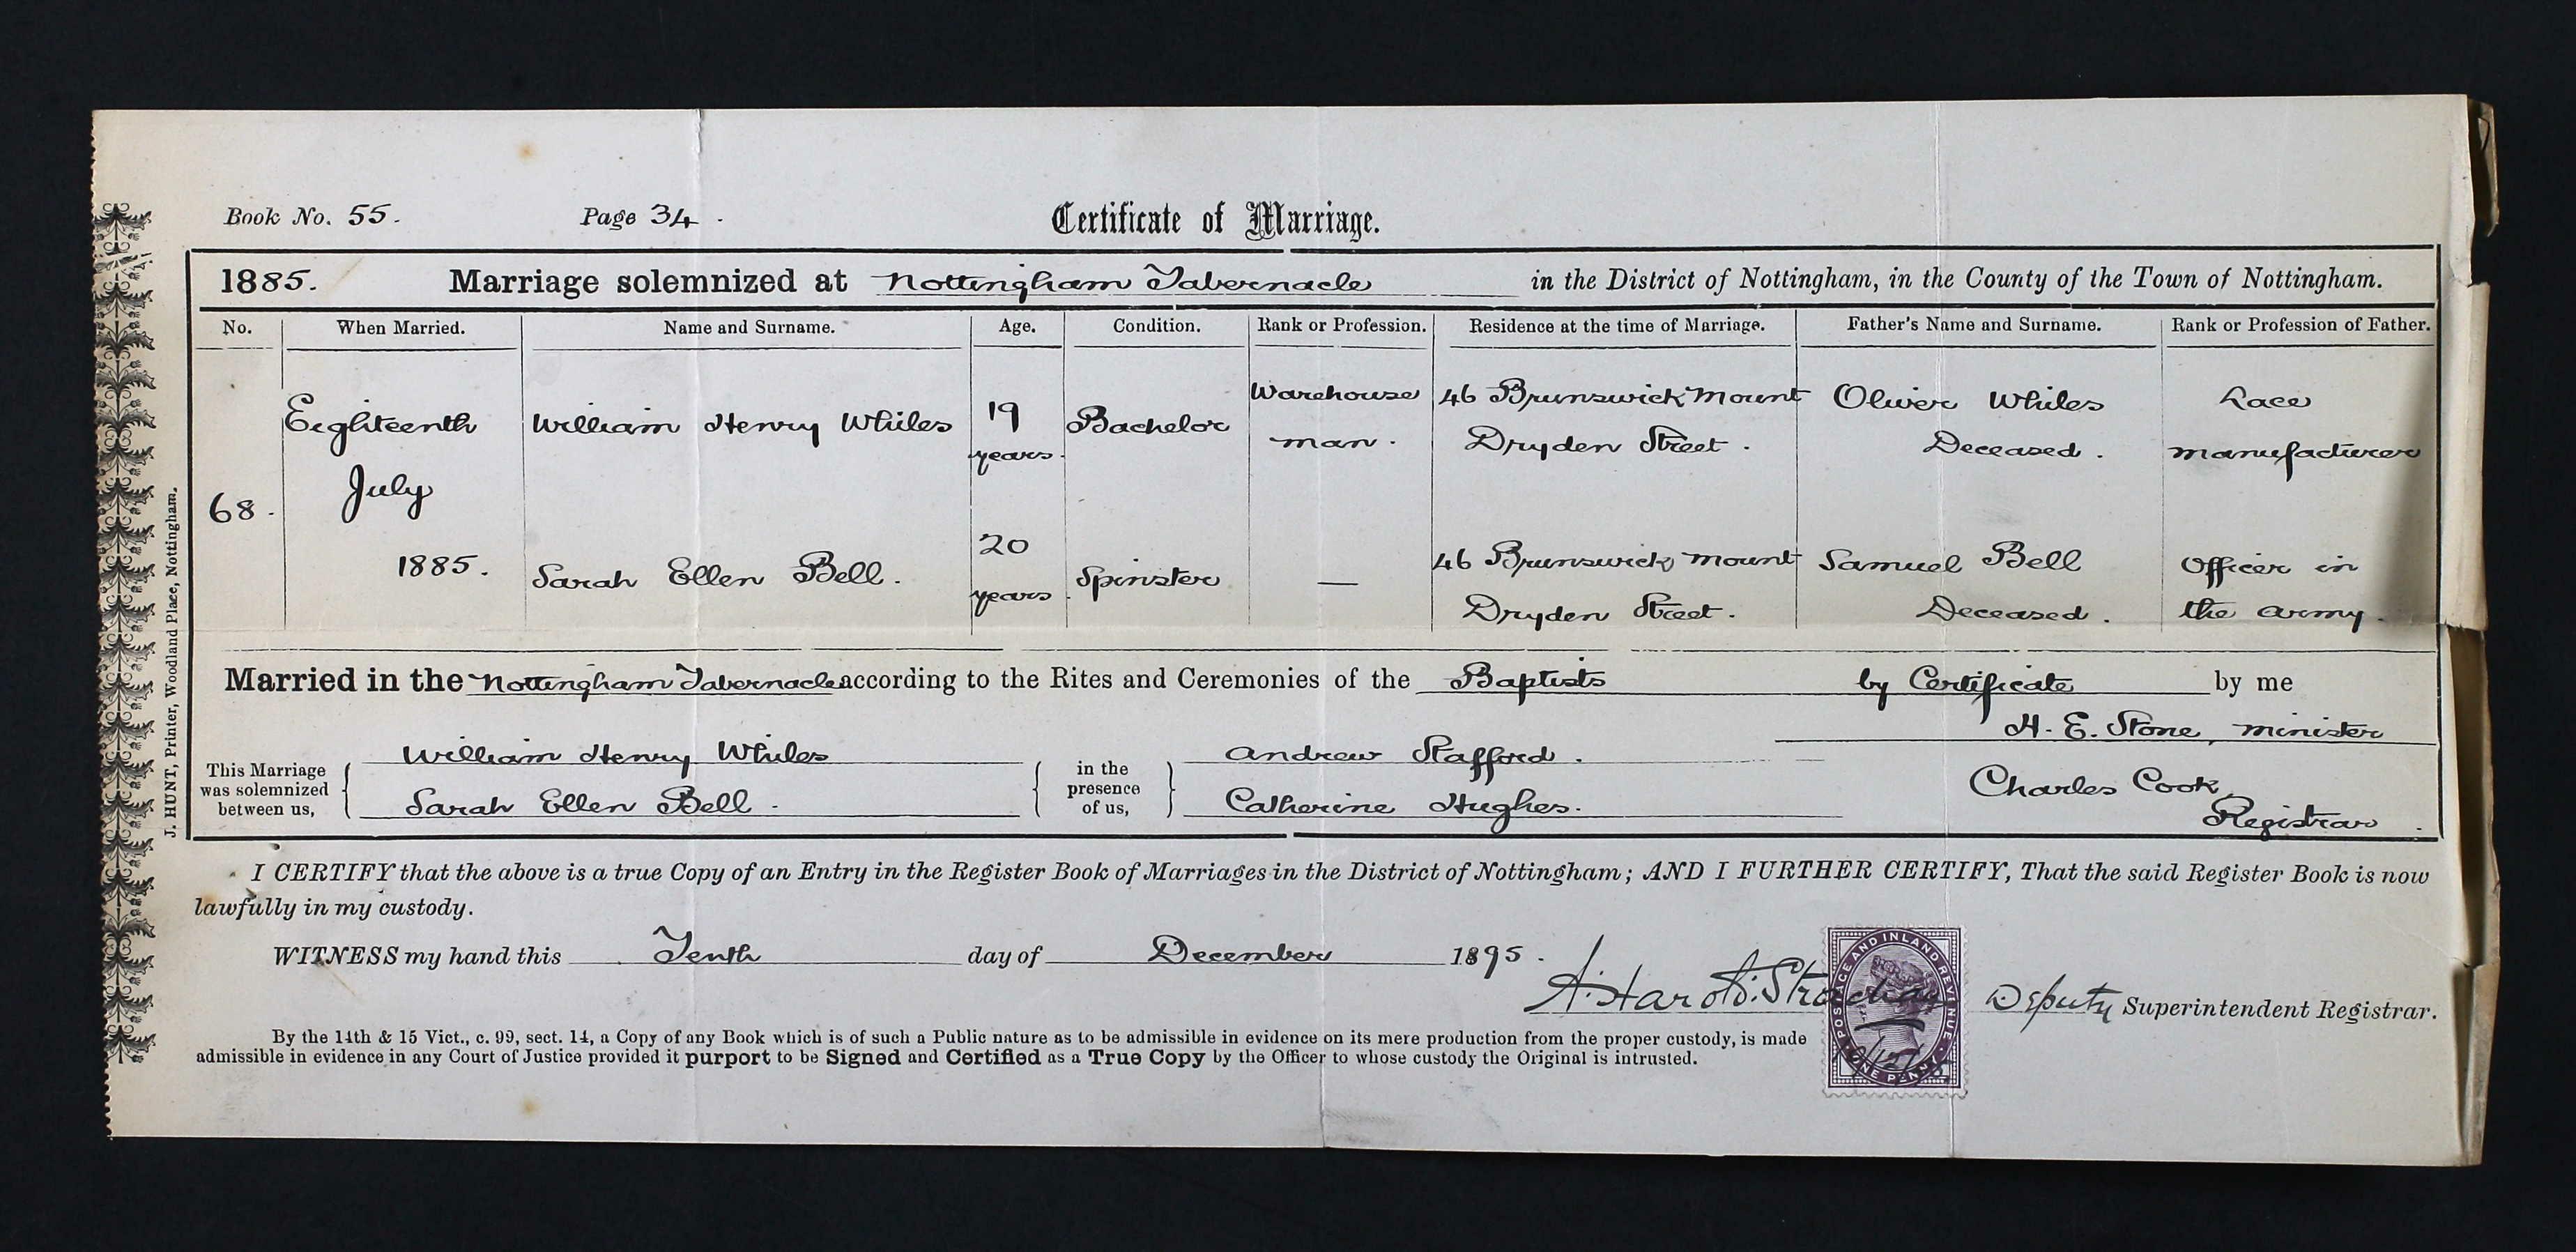 Book No. 55. Page 34.
Certificate of Marriage.
1885. Marriage solemnized at Nottingham Tabernacle in the District of Nottingham, in the County of the Town of Nottingham.
No. When Married. Name and Surname. Age. Condition. Rank or Profession. Residence at the time of Marriage. Father's Name and Surname. Rank or Profession of Father.
68. Eighteenth July 1885.
William Henry Whiles 19 years Bachelor Warehouse man. 46 Brunswick Mount Dryden Street. Oliver Whiles Deceased. Lace manufacturer
Sarah Ellen Bell. 20 years. Spinster — 46 Brunswick Mount Dryden Street. Samuel Bell Deceased. Officer in the army.
Married in the Nottingham Tabernacle according to the Rites and Ceremonies of the Baptists by Certificate by me
H. E. Stone, minister
This Marriage was solemnized between us, William Henry Whiles Sarah Ellen Bell. in the presence of us, Andrew Stafford. Catherine Hughes.
Charles Cook, Registrar.
I CERTIFY that the above is a true Copy of an Entry in the Register Book of Marriages in the District of Nottingham; AND I FURTHER CERTIFY, That the said Register Book is now
lawfully in my custody.
WITNESS my hand this Tenth day of December 1895.
Deputy Superintendent Registrar.
POSTAGE AND INLAND REVENUE ONE PENNY
By the 14th & 15 Vict., c. 99, sect. 14, a Copy of any Book which is of such a Public nature as to be admissible in evidence on its mere production from the proper custody, is made
admissible in evidence in any Court of Justice provided it purport to be Signed and Certified as a True Copy by the Officer to whose custody the Original is intrusted.
J. HUNT, Printer, Woodland Place, Nottingham.